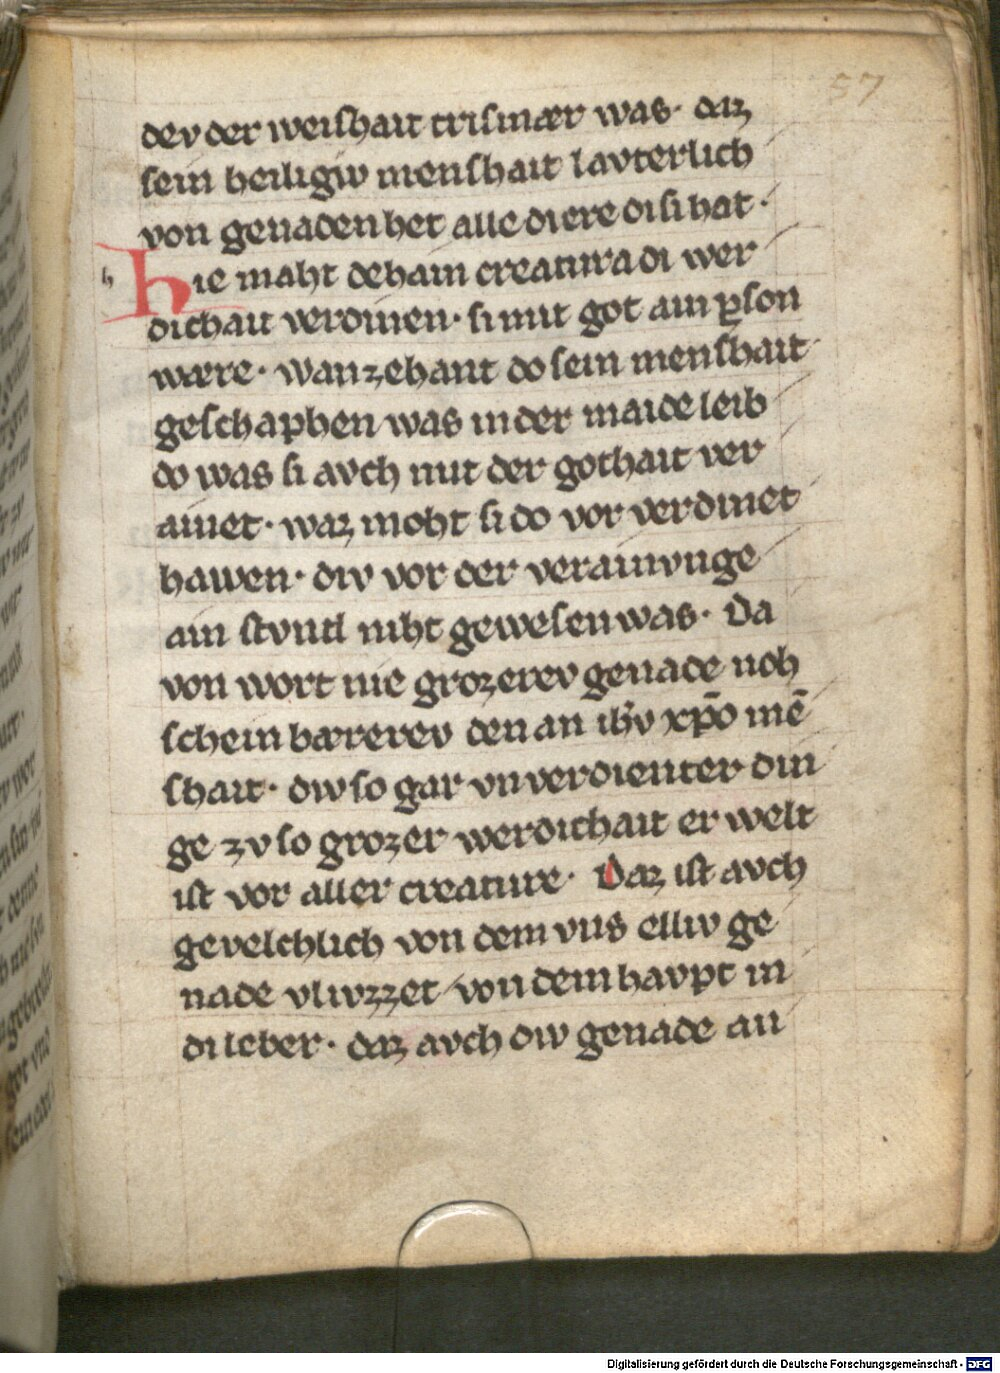 57
dev der weishait trismær was· daz
sein heiligiv menshait lavterlich
von genaden het alle di ere di si hat·
h
hie maht dehain creatura di wer
dichait verdinen· si mit got ain ꝑson
wære· wan zehant do sein menshait
geschaphen was in der maide leib
do was si avch mit der gothait ver
ainet· waz moht si do vor verdinet
hawen· div vor der verainvnge
ain stvntl niht gewesen was· Da
von wort nie grozerev genade noh
schein bærerev den an ih̄v xp̄o mē
shait· div so gar vnverdienter din
ge zv so grozer werdichait er welt
ist vor aller creature· Daz ist avch
gevelchlich von dem vns elliv ge
nade vlivzzet von dem havpt in
di leber· daz avch div genade an
Digitalisierung gefördert durch die Deutsche Forschungsgemeinschaft - DFG